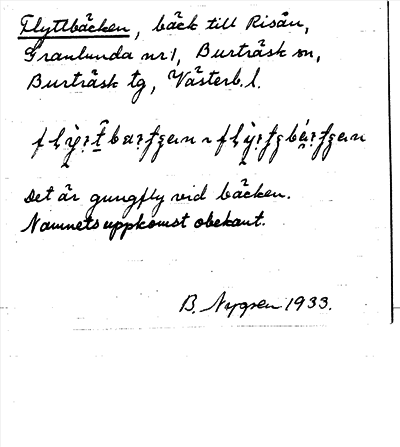 Flyttbäcken, bäck till Risån,
Granlunda nr 1, Burträsk sn,
Burträsk tg, Västerb. l.
Det är gungfly vid bäcken.
Namnets uppkomst obekant.
B. Nygren 1933.